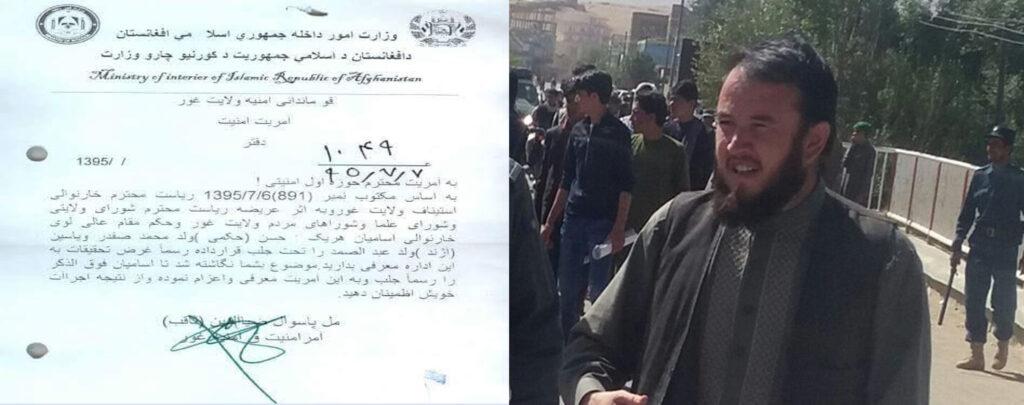 وزارت امور داخله جمهوري اسلا مي افغانستان
دافغانستان د اسلامي جمهوریت د کورنیو چارو وزارت
Ministry of interior of Islamic Republic of Afghanistan
قو ماندانی امنیه ولایت غور
آمریت امنیت
دفتر
۱۰۴۹
1395/ /
۹۵/۷/۷
به آمریت محترم حوزه اول امنیتی !
به اساس مکتوب نمبر (891)1395/7/6 ریاست محترم خارنوالی
استیناف ولایت غوروبه اثر عریضه ریاست محترم شورای ولایتی
وشورای علما وشوراهای مردم ولایت غور وحکم مقام عالی لوی
خارنوالی آسامیان هریک حسن (حکیمی )ولد محمد صفدر ویاسین
(آژند )ولد عبد الصمد را تحت جلب قرارداده رسماً غرض تحقیقات به
این اداره معرفی بدارید.موضوع بشما نگاشته شد تا آسامیان فوق الذکر
را رسماً جلب وبه این آمریت معرفی واعزام نموده واز نتیجه اجراآت
خویش اطمینان دهید.
مل پاسوال
آمرامنیت غور